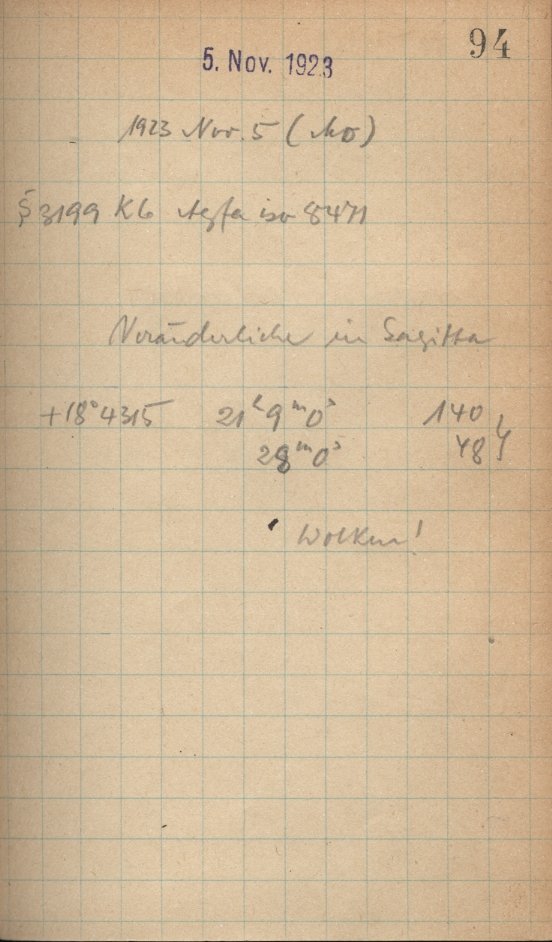 94
5. Nov. 1923
1923 Nov. 5 (Mo)
S 3199 K6 Agfa iso 8471
Veränderliche in Sagitta
+18°4315 21ʰ9ᵐ0ˢ 140
28ᵐ0ˢ 48
Wolken!